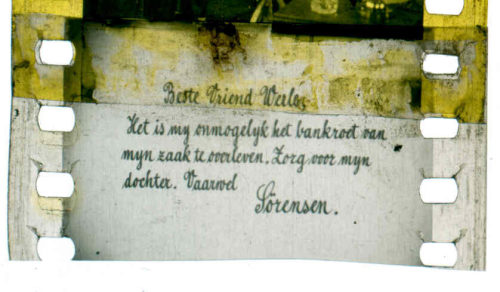 Beste Vriend
Het is my onmogelyk het bankroet van
myn zaak te overleven. Zorg voor myn
dochter. Vaarwel
Sörensen.